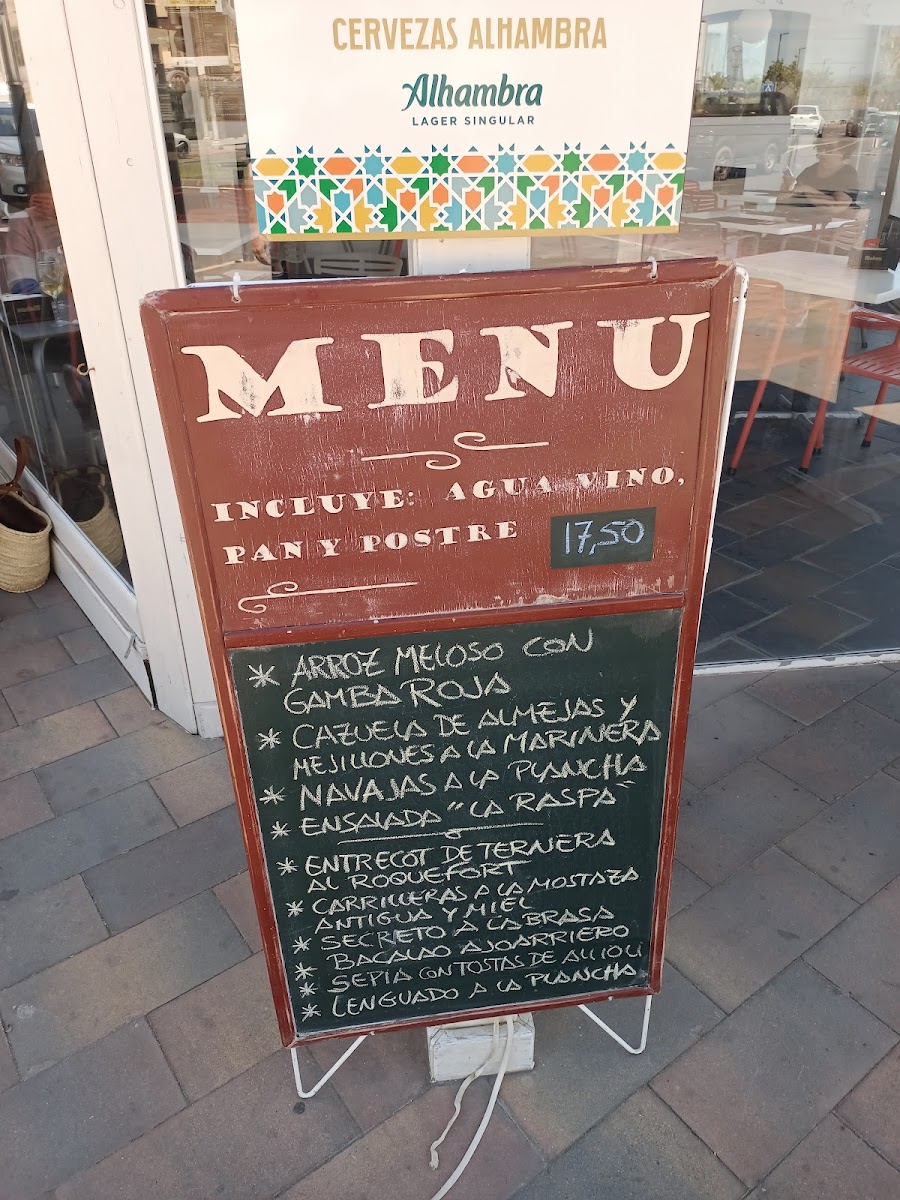 CERVEZAS ALHAMBRA
Alhambra
LAGER SINGULAR
MENU
INCLUYE: AGUA VINO,
PAN Y POSTRE 17,50
* ARROZ MELOSO CON
GAMBA ROJA
* CAZUELA DE ALMEJAS Y
MEJILLONES A LA MARINERA
* NAVAJAS A LA PLANCHA
* ENSALADA "LA RASPA"
* ENTRECOT DE TERNERA
AL ROQUEFORT
* CARRILLERAS A LA MOSTAZA
ANTIGUA Y MIEL
* SECRETO A LA BRASA
* BACALAO AJOARRIERO
* SEPIA CON TOSTAS DE ALLIOLI
* LENGUADO A LA PLANCHA